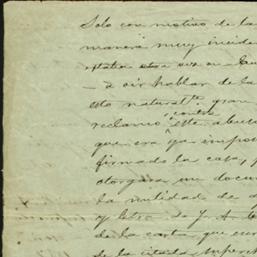 Solo con motivo de la
manera muy incide
estaba otra vez en
- a oir hablar de la
esto natural.te gran
reclamo contra este abuso
que era ya impos
firmado la casa, y
otorgara un docu
la nulidad de
y Petro. de J. A.
de la carta, que
de la citada